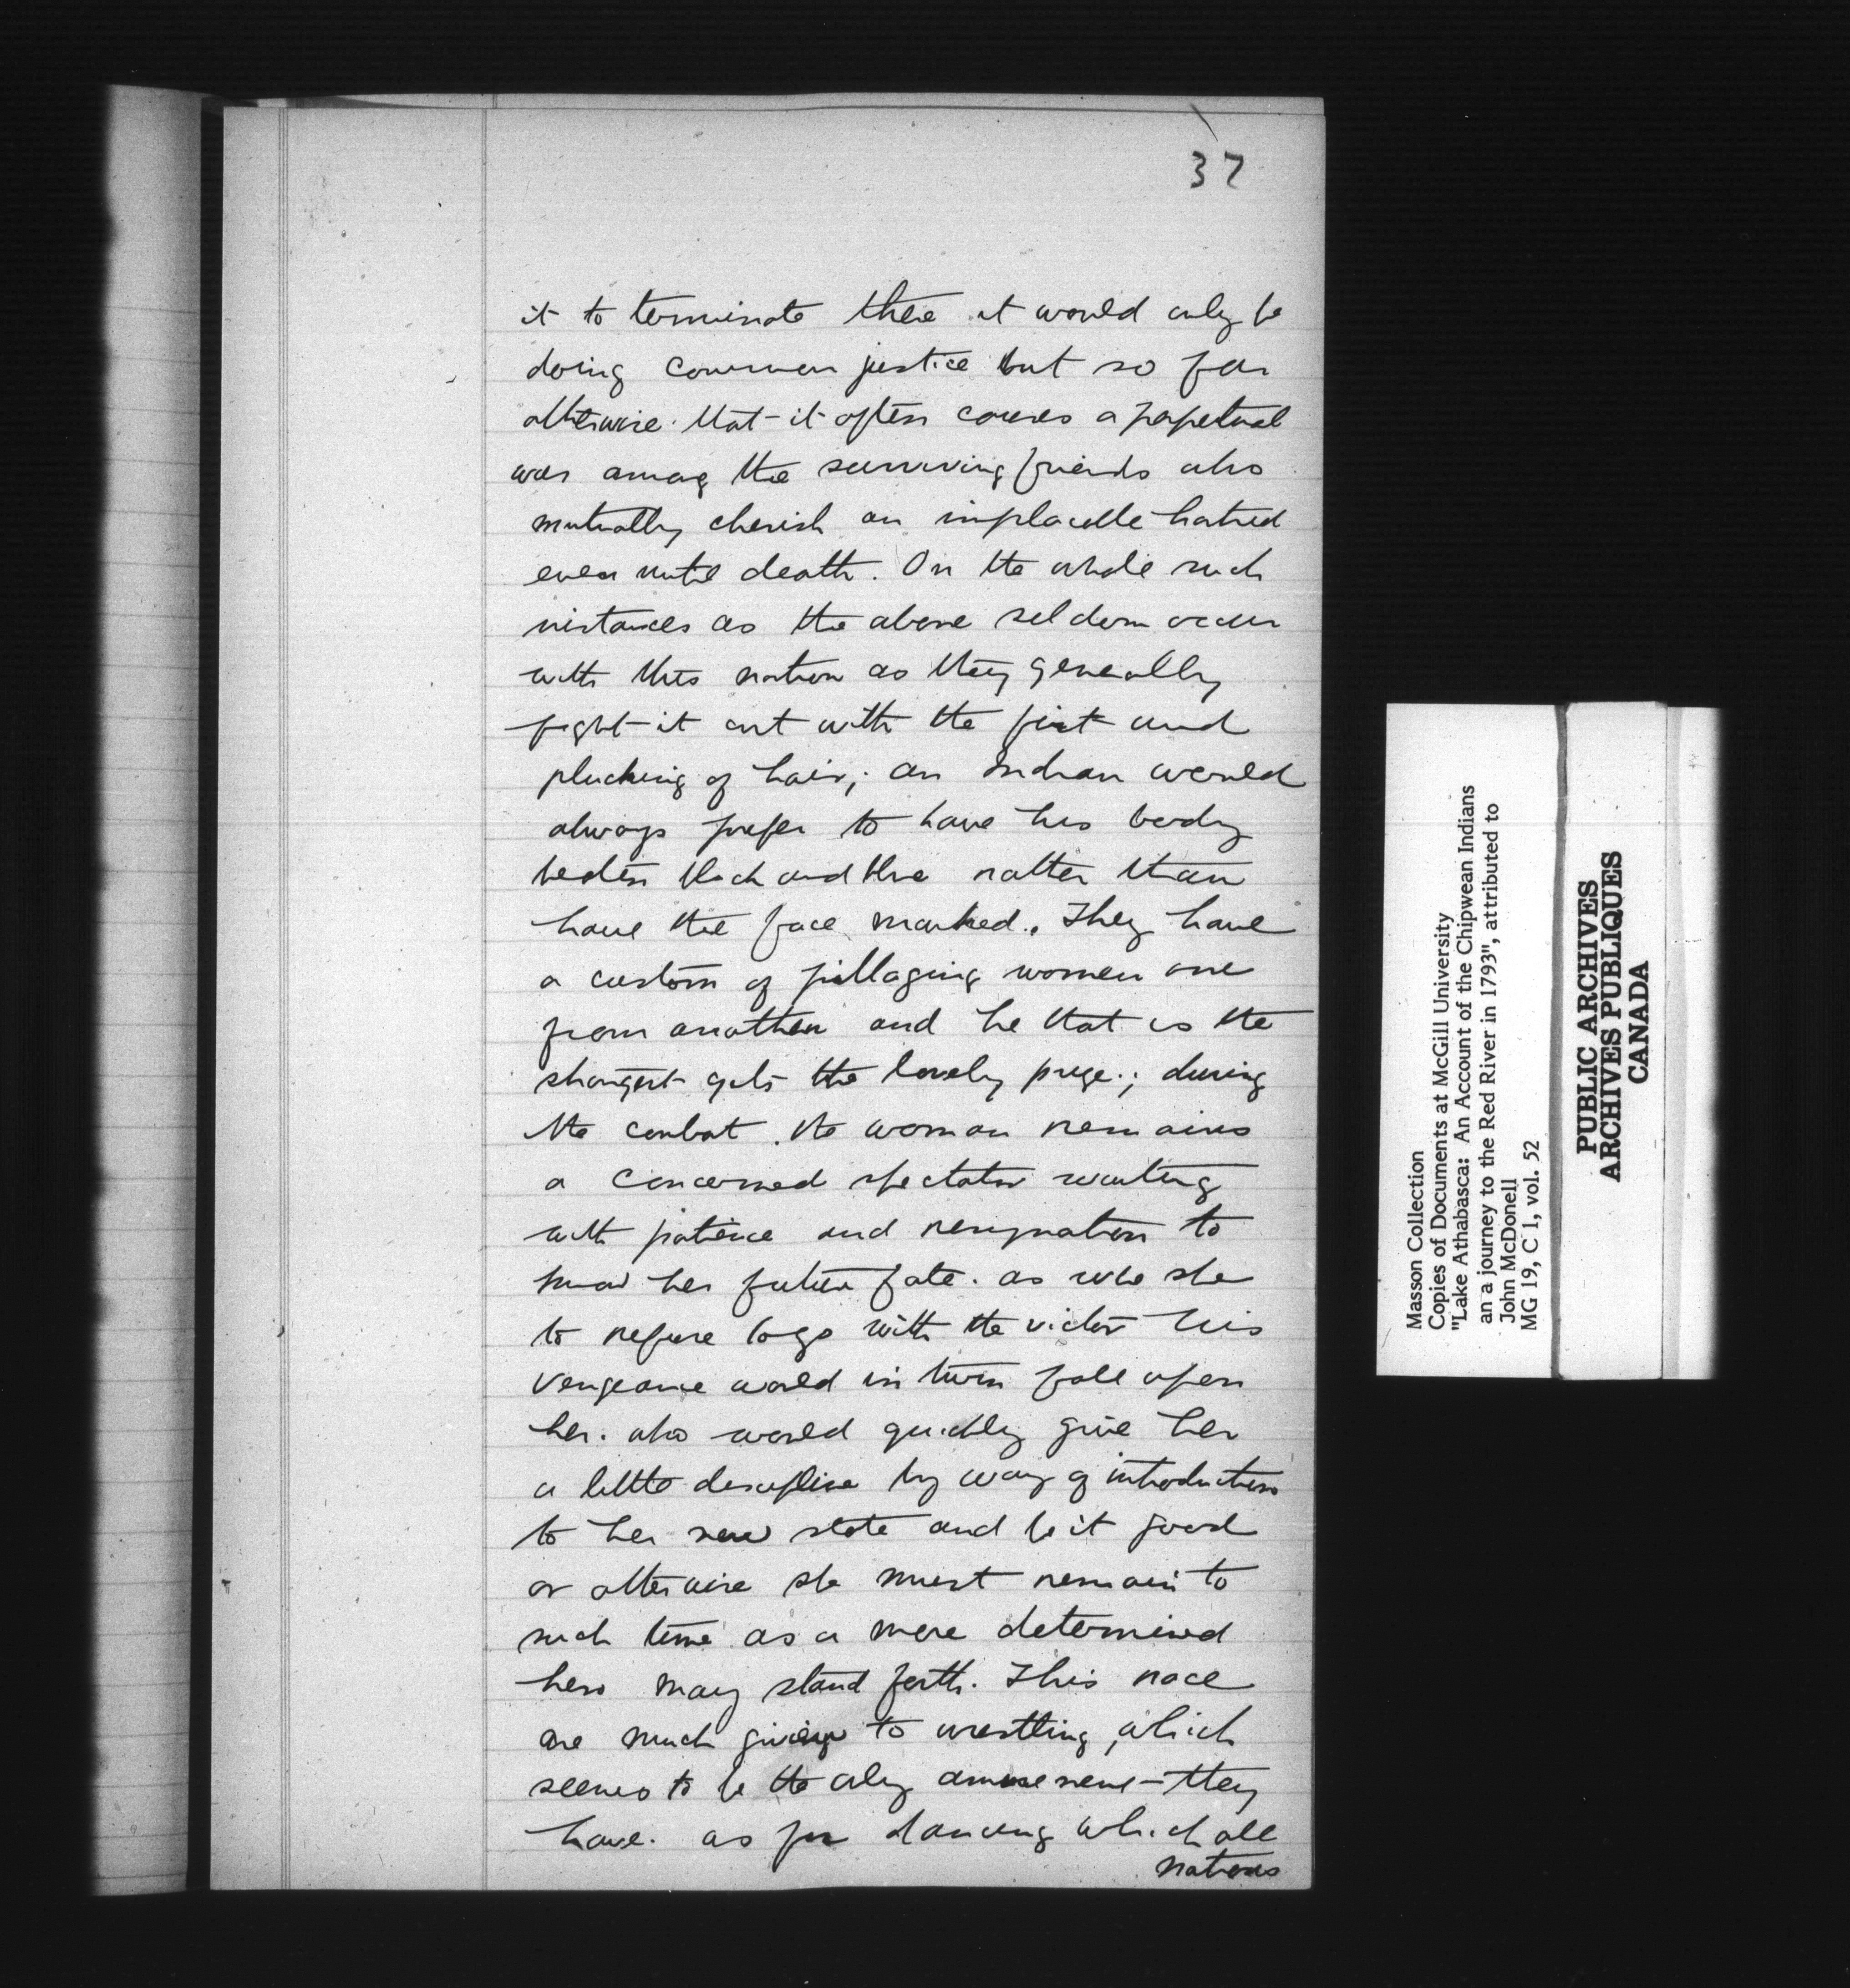 37
it to terminate there it would only be
doing common justice but so far
otherwise that it often causes a perpetual
war among the surviving friends who
mutually cherish an implacable hatred
even until death. On the whole such
instances as the above seldom occur
with this nation as they generally
fight it out with the fist and
plucking of hair, an Indian would
always prefer to have his body
beaten black and blue rather than
have the face marked. They have
a custom of pillaging women one
from another and he that is the
strongest gets the lovely prize; during
the combat the woman remains
a concerned spectator waiting
with patience and resignation to
know her future fate. as were she
to refuse to go with the victor his
vengeance would in turn fall upon
her. who would quickly give her
a little discipline by way of introduction
to her new state and be it good
or otherwise she must remain to
such time as a more determined
hero may stand forth. This race
are much given to wrestling, which
seems to be the only amusement they
have. as for dancing which all
nations
Masson Collection
Copies of Documents at McGill University
"Lake Athabasca: An Account of the Chipwean Indians
an a journey to the Red River in 1793", attributed to
John McDonell
MG 19, C 1, vol. 52
PUBLIC ARCHIVES
ARCHIVES PUBLIQUES
CANADA